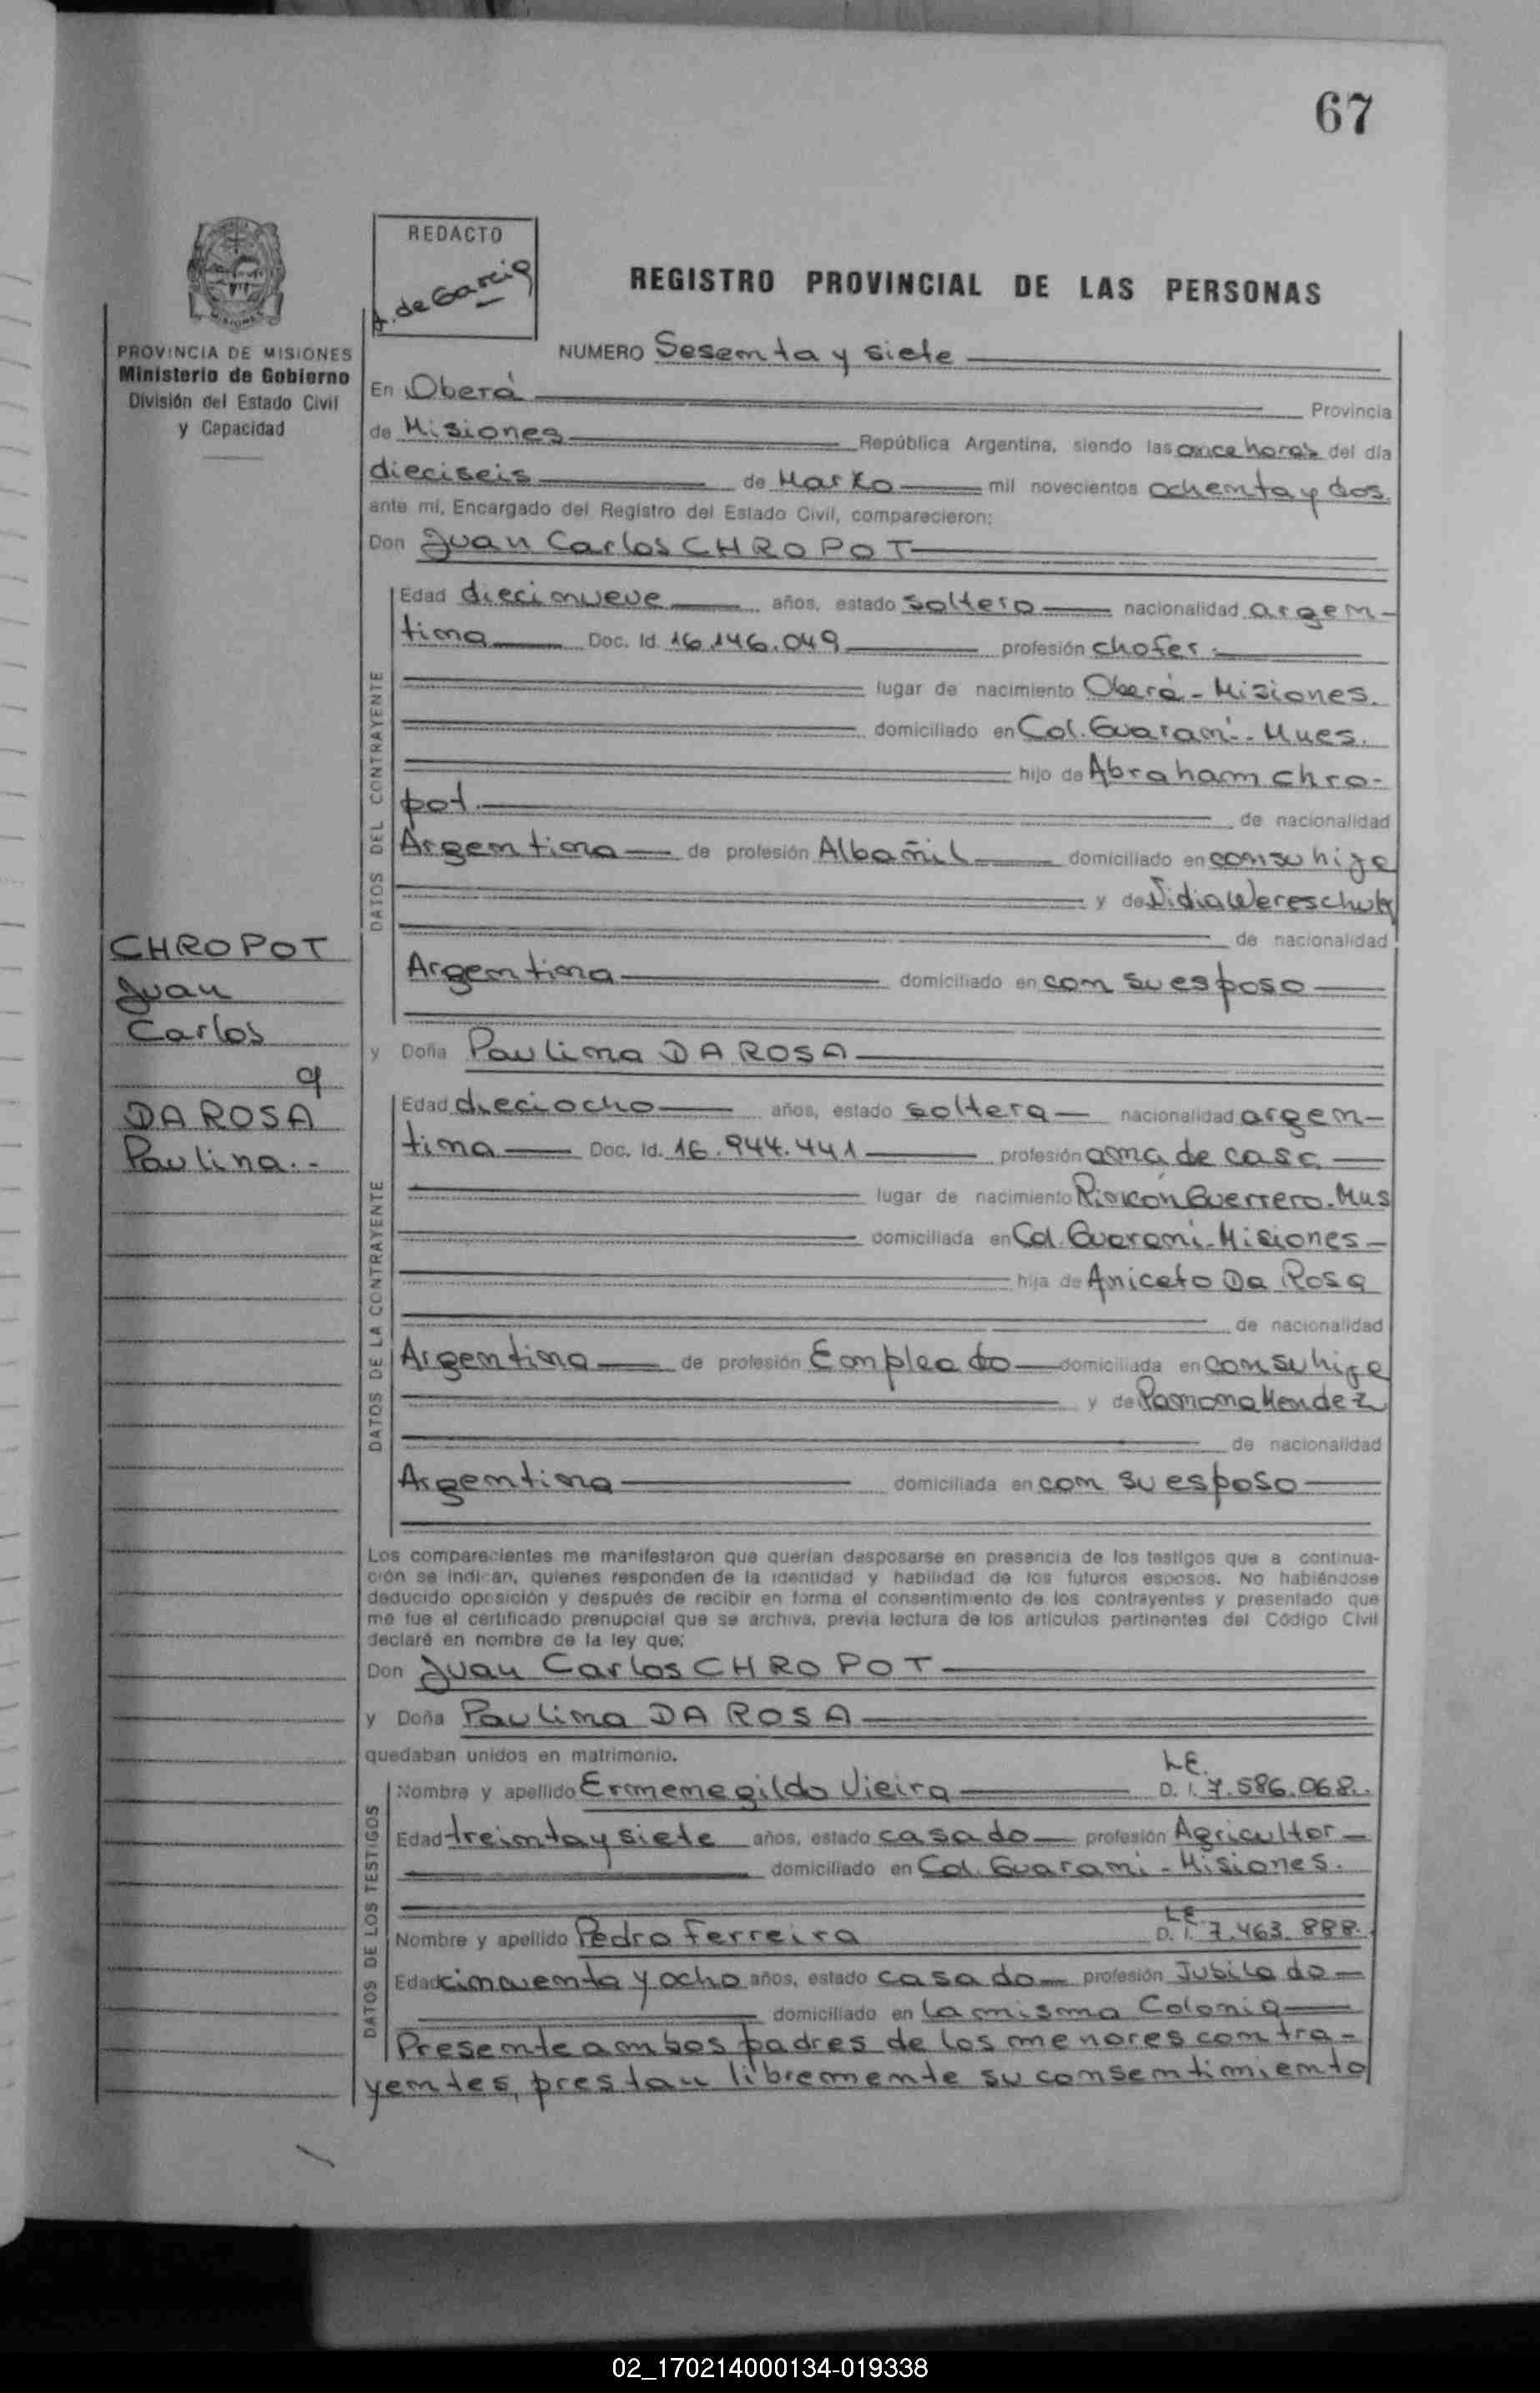 67
REDACTO
J. de Garcia
REGISTRO PROVINCIAL DE LAS PERSONAS
PROVINCIA DE MISIONES
Ministerio de Gobierno
División del Estado Civil
y Capacidad
NUMERO Sesenta y siete
En Oberá Provincia
de Misiones República Argentina, siendo las once horas del día
dieciseis de Marzo mil novecientos ochenta y dos
ante mí, Encargado del Registro del Estado Civil, comparecieron:
Don Juan Carlos CHROPOT
DATOS DEL CONTRAYENTE
Edad diecinueve años, estado soltero nacionalidad argen-
tina Doc. Id. 16.146.049 profesión chofer.
lugar de nacimiento Oberá - Misiones.
domiciliado en Col. Guaraní - Mnes.
hijo de Abraham Chro-
pot. de nacionalidad
Argentina de profesión Albañil domiciliado en con su hijo
y de Nidia Wereschuk
de nacionalidad
Argentina domiciliado en con su esposo
CHROPOT
Juan
Carlos
y
DA ROSA
Paulina.-
y Doña Paulina DA ROSA
DATOS DE LA CONTRAYENTE
Edad dieciocho años, estado soltera nacionalidad argen-
tina Doc. Id. 16.944.441 profesión ama de casa
lugar de nacimiento Rincón Guerrero. Mns
domiciliada en Col. Guaraní - Misiones -
hija de Aniceto Da Rosa
de nacionalidad
Argentina de profesión Empleado domiciliada en con su hija
y de Ramona Mendez
de nacionalidad
Argentina domiciliada en con su esposo
Los comparecientes me manifestaron que querían desposarse en presencia de los testigos que a continua-
ción se indican, quienes responden de la identidad y habilidad de los futuros esposos. No habiéndose
deducido oposición y después de recibir en forma el consentimiento de los contrayentes y presentado que
me fue el certificado prenupcial que se archiva, previa lectura de los artículos pertinentes del Código Civil
declaré en nombre de la ley que:
Don Juan Carlos CHROPOT
y Doña Paulina DA ROSA
quedaban unidos en matrimonio.
DATOS DE LOS TESTIGOS
L.E.
Nombre y apellido Ermenegildo Vieira D. I. 7.586.068.
Edad treinta y siete años, estado casado profesión Agricultor
domiciliado en Col. Guaraní - Misiones.
L.E.
Nombre y apellido Pedro Ferreira D. I. 7.463.888.
Edad cincuenta y ocho años, estado casado profesión Jubilado
domiciliado en la misma Colonia
Presente ambos padres de los menores contra-
yentes, prestan libremente su consentimiento
02_170214000134-019338